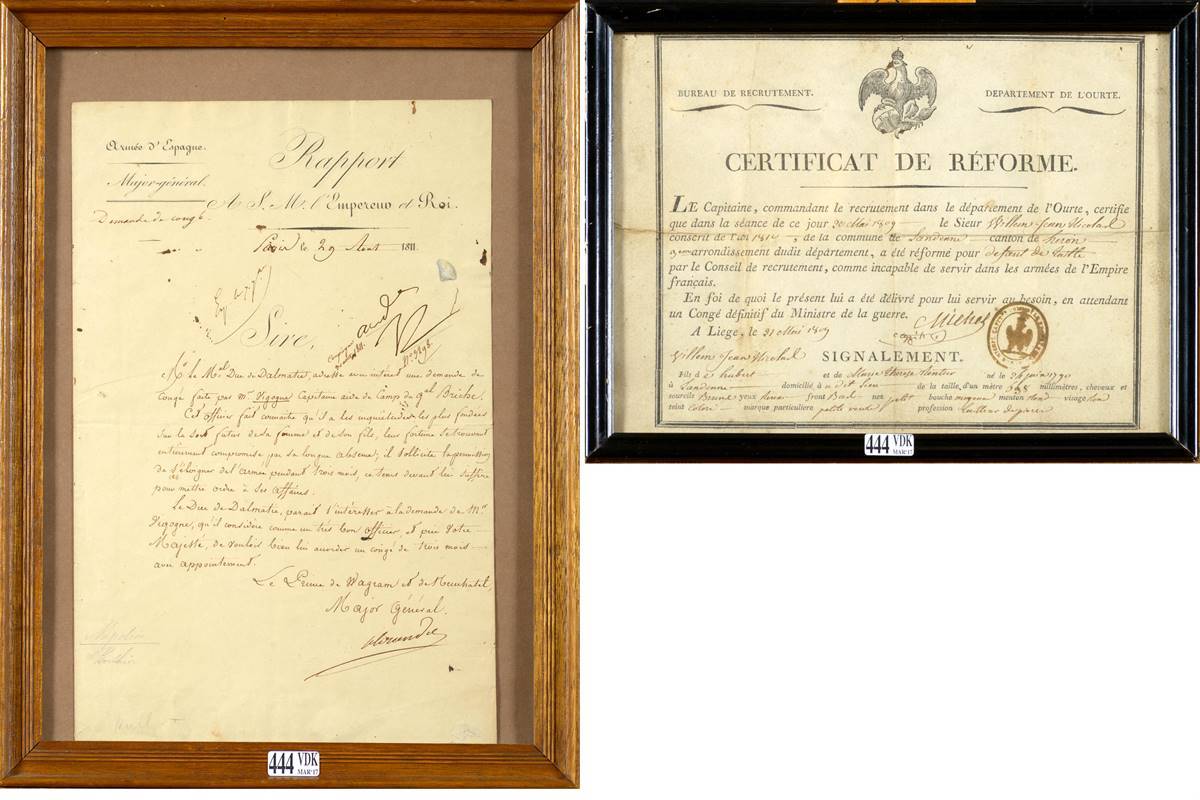 Armée d'Espagne.
Major-général.
Demande de congé.
Rapport
A S. M. l'Empereur et Roi.
Paris le 29 Aout 1811.
Sire,
N
Nº 2898.
Le Mal Duc de Dalmatie, adresse une demande de
Congé faite par Mr. Vigogne Capitaine aide de Camp du Gal Briche.
Cet officier fait connaitre qu'il a les inquiétudes les plus fondées
sur le sort futur de sa femme et de son fils, leur fortune se trouvant
entierement compromise par sa longue absence; il sollicite la permission
de s'éloigner de l'armée pendant trois mois, ce tems devant lui suffire
pour mettre ordre à ses affaires.
Le Duc de Dalmatie, parait s'intéresser à la demande de Mr.
Vigogne, qu'il considère comme un très bon officier, et prie Votre
Majesté, de vouloir bien lui accorder un congé de trois mois
avec appointement.
Le Prince de Wagram et de Neuchatel,
Major Général.
Alexandre
Napoléon
Berthier
444 VDK
MAR'17
BUREAU DE RECRUTEMENT.
DÉPARTEMENT DE L'OURTE.
CERTIFICAT DE RÉFORME.
LE Capitaine, commandant le recrutement dans le département de l'Ourte, certifie
que dans la séance de ce jour 30 Mai 1809 le Sieur Willem Jean Nicolas
conscrit de l'an 1810, de la commune de Landenne canton de heron
arrondissement dudit département, a été réformé pour defaut de taille
par le Conseil de recrutement, comme incapable de servir dans les armées de l'Empire
français.
En foi de quoi le présent lui a été délivré pour lui servir au besoin, en attendant
un Congé définitif du Ministre de la guerre.
A Liege, le 31 Mai 1809
Michel
Willem Jean Nicolas
SIGNALEMENT.
Fils d'hubert et de Marie Therese né le 26 juin 1790
à Landenne domicilié à u dit Lieu de la taille d'un mètre millimètres, cheveux et
sourcils Bruns yeux front Bas nez petit bouche moyenne menton rond visage
teint coloré marque particuliere petite verole profession
444 VDK
MAR'17